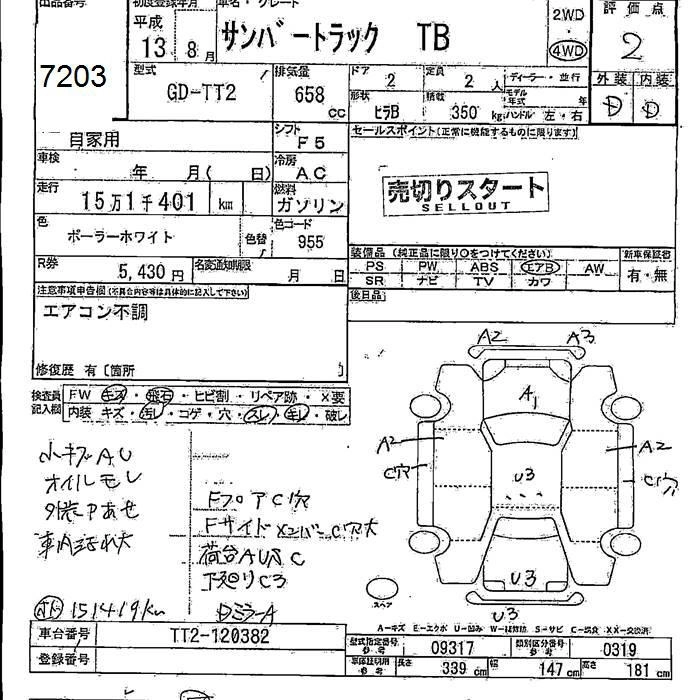 出品番号 初度登録年月 車名・グレード 2WD 評価点
平成 13年 8月 サンバートラック TB 4WD 2
7203
型式 排気量 ドア 2 定員 2人 ディーラー・並行 外装 内装
GD-TT2 658 cc 形状 ピラB 積載 350 kg モデル年式 年 D D
ハンドル 左・右
自家用 シフト F5 セールスポイント(正常に機能するものに限ります)
車検 年 月( 日) 冷房 AC
走行 15万1千401 km 燃料 ガソリン
売切りスタート
SELLOUT
色 ポーラーホワイト 色替 色コード 955
R券 5,430円 名変通知期限 月 日
装備品(純正品に限り○をつけてください) 新車保証書
PS PW ABS エアB AW 有・無
SR ナビ TV カワ
後日品
注意事項申告欄(不具合内容等は具体的に記入して下さい)
エアコン不調
修復歴 有〔箇所 〕
検査員記入欄 FW キズ・飛石・ヒビ割・リペア跡・X要
内装 キズ・汚レ・コゲ・穴・スレ・キレ・破レ
A2 A3
A1
A2 A2
C穴 U3 C穴
U3
U3
小キズAU
オイルモレ
外装巾あせ
車内汚れ大
FフロアC穴
Fサイドメンバー C穴大
荷台AUS C
下廻りC3
DミラーA
151419km
スペア
A-キズ E-エクボ U-凹み W-補修跡 S-サビ C-腐食 XX-交換済
車台番号 TT2-120382
登録番号
型式指定番号 参考 09317 類別区分番号 参考 0319
車庫証明用 参考 長さ 339 cm 幅 147 cm 高さ 181 cm